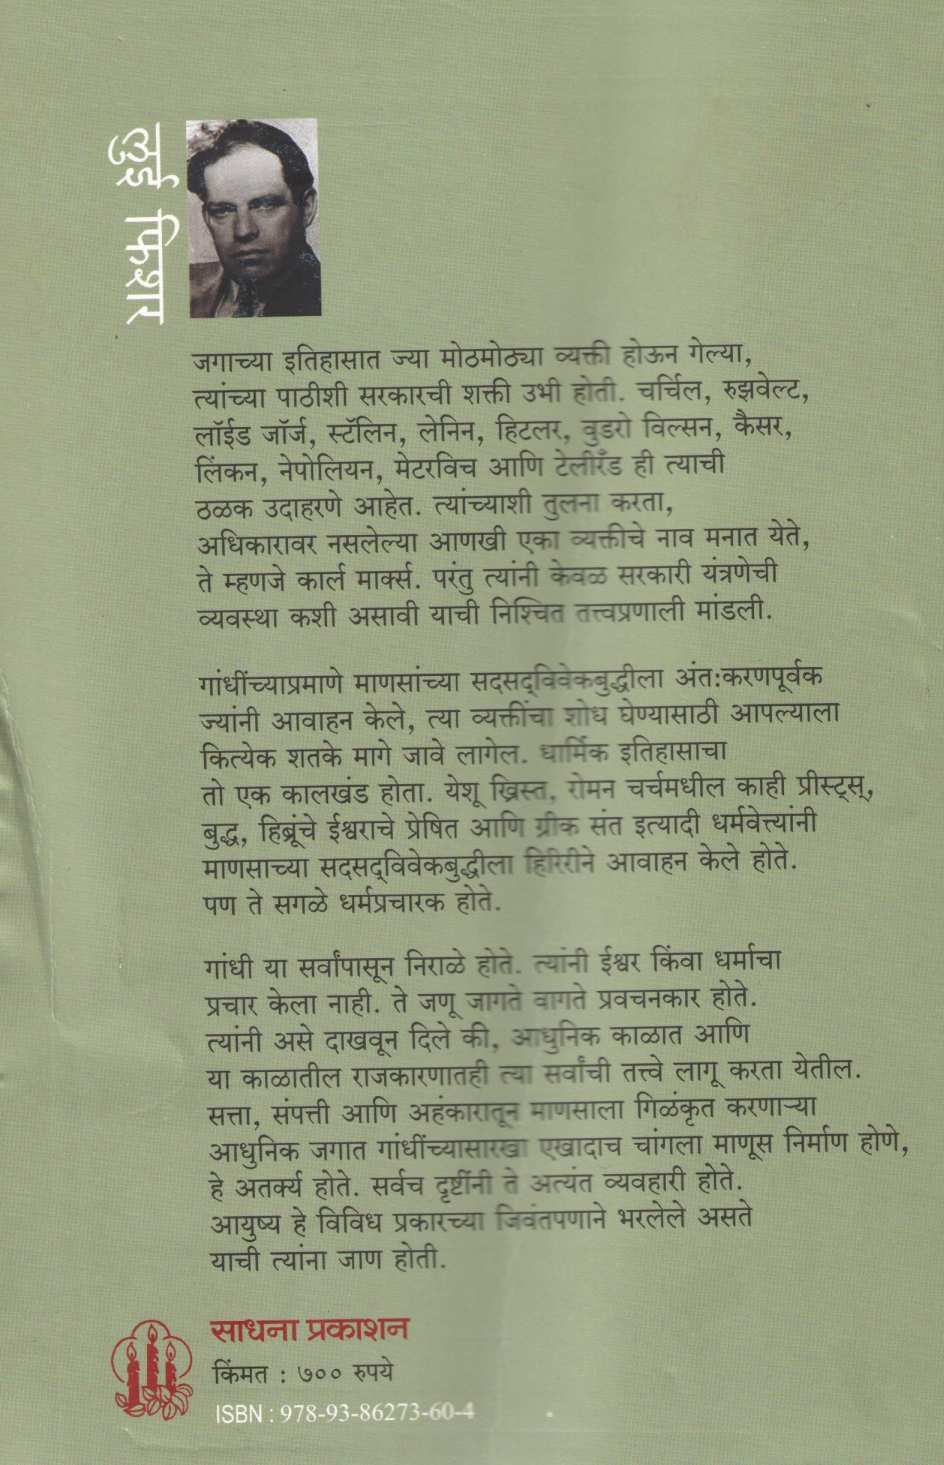 लुई फिशर
जगाच्या इतिहासात ज्या मोठमोठ्या व्यक्ती होऊन गेल्या,
त्यांच्या पाठीशी सरकारची शक्ती उभी होती. चर्चिल, रुझवेल्ट,
लॉईड जॉर्ज, स्टॅलिन, लेनिन, हिटलर, वुडरो विल्सन, कैसर,
लिंकन, नेपोलियन, मेटरविच आणि टेलीरँड ही त्याची
ठळक उदाहरणे आहेत. त्यांच्याशी तुलना करता,
अधिकारावर नसलेल्या आणखी एका व्यक्तीचे नाव मनात येते,
ते म्हणजे कार्ल मार्क्स. परंतु त्यांनी केवळ सरकारी यंत्रणेची
व्यवस्था कशी असावी याची निश्चित तत्त्वप्रणाली मांडली.
गांधींच्याप्रमाणे माणसांच्या सदसद्‌विवेकबुद्धीला अंत:करणपूर्वक
ज्यांनी आवाहन केले, त्या व्यक्तींचा शोध घेण्यासाठी आपल्याला
कित्येक शतके मागे जावे लागेल. धार्मिक इतिहासाचा
तो एक कालखंड होता. येशू ख्रिस्त, रोमन चर्चमधील काही प्रीस्ट्स्,
बुद्ध, हिब्रूंचे ईश्वराचे प्रेषित आणि ग्रीक संत इत्यादी धर्मवेत्त्यांनी
माणसाच्या सदसद्‌विवेकबुद्धीला हिरिरीने आवाहन केले होते.
पण ते सगळे धर्मप्रचारक होते.
गांधी या सर्वांपासून निराळे होते. त्यांनी ईश्वर किंवा धर्माचा
प्रचार केला नाही. ते जणू जागते वागते प्रवचनकार होते.
त्यांनी असे दाखवून दिले की, आधुनिक काळात आणि
या काळातील राजकारणातही त्या सर्वांची तत्त्वे लागू करता येतील.
सत्ता, संपत्ती आणि अहंकारातून माणसाला गिळंकृत करणाऱ्या
आधुनिक जगात गांधींच्यासारखा एखादाच चांगला माणूस निर्माण होणे,
हे अतर्क्य होते. सर्वच दृष्टींनी ते अत्यंत व्यवहारी होते.
आयुष्य हे विविध प्रकारच्या जिवंतपणाने भरलेले असते
याची त्यांना जाण होती.
साधना प्रकाशन
किंमत : ७०० रुपये
ISBN : 978-93-86273-60-4